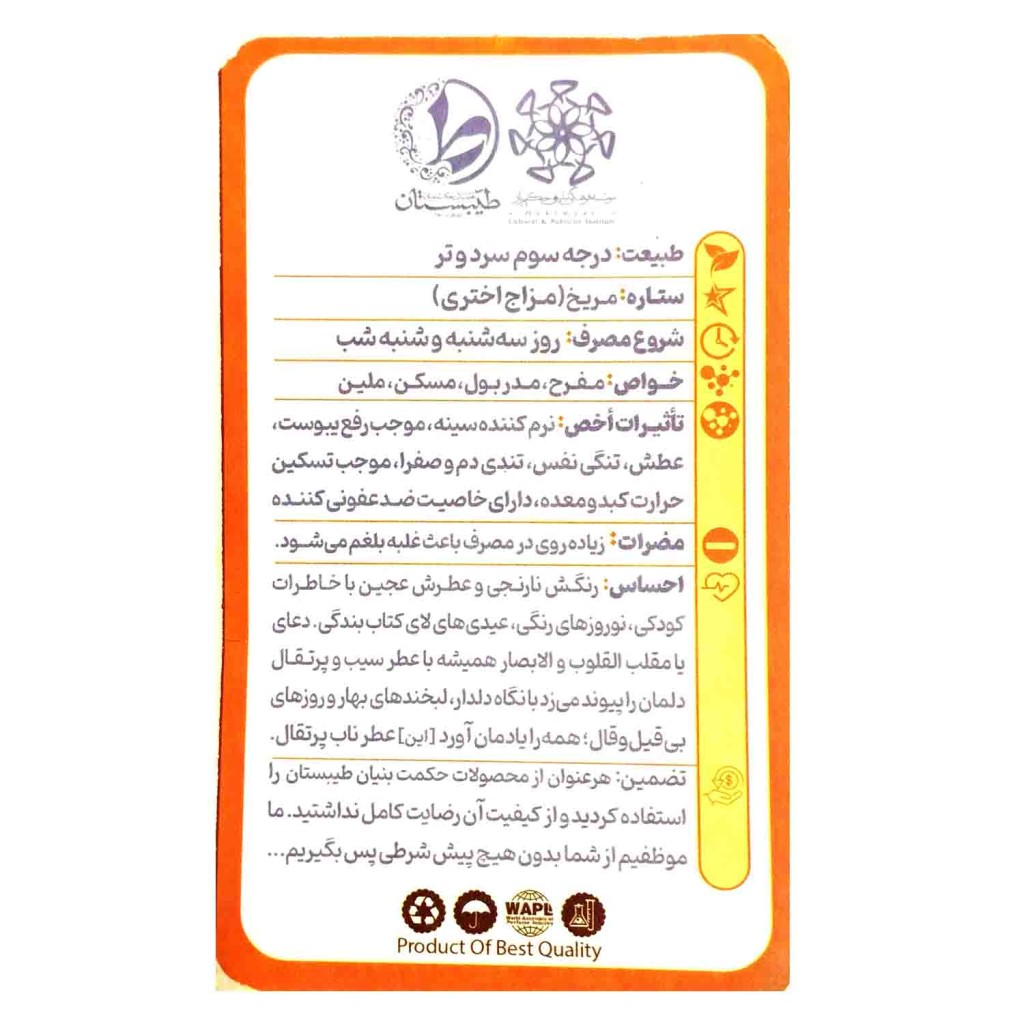 طیبستان
Cultural & Publisher Institute
طبیعت: درجه سوم سرد و تر
ستاره: مریخ (مزاج اختری)
شروع مصرف: روز سه‌شنبه و شنبه شب
خواص: مفرح، مدر بول، مسکن، ملین
تأثیرات أخص: نرم کننده سینه، موجب رفع یبوست،
عطش، تنگی نفس، تندی دم و صفرا، موجب تسکین
حرارت کبد و معده، دارای خاصیت ضد عفونی کننده
مضرات: زیاده‌روی در مصرف باعث غلبه بلغم می‌شود.
احساس: رنگش نارنجی و عطرش عجین با خاطرات
کودکی، نوروزهای رنگی، عیدی‌های لای کتاب بندگی. دعای
یا مقلب القلوب و الابصار همیشه با عطر سیب و پرتقال
دلمان را پیوند می‌زد با نگاه دلدار، لبخندهای بهار و روزهای
بی قیل و قال؛ همه را یادمان آورد [این] عطر ناب پرتقال.
تضمین: هرعنوان از محصولات حکمت بنیان طیبستان را
استفاده کردید و از کیفیت آن رضایت کامل نداشتید. ما
موظفیم از شما بدون هیچ پیش شرطی پس بگیریم...
WAPI
Product Of Best Quality